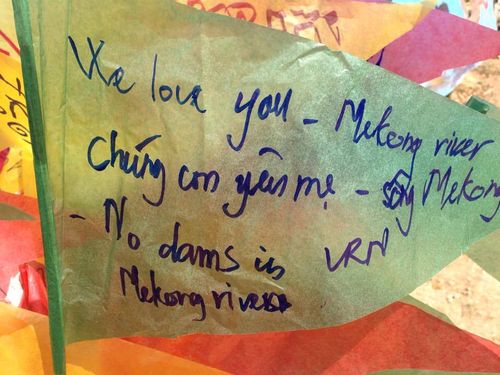 We love you - Mekong river
Chúng con yêu mẹ - sông Mekong
- No dams in VRN
Mekong river